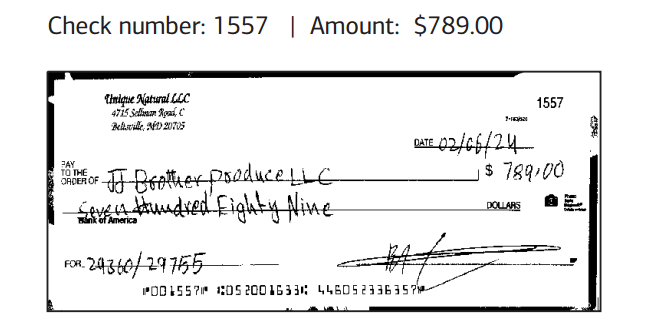 Check number: 1557 | Amount: $789.00
Unique Natural LLC
4715 Sellman Road, C
Beltsville, MD 20705
1557
DATE 02/06/24
PAY
TO THE
ORDER OF JJ Brother Produce LLC $ 789.00
Seven Hundred Eighty Nine DOLLARS
Bank of America
FOR 29360/29755
⑈001557⑈ ⑆052001633⑆ 446052336357⑈